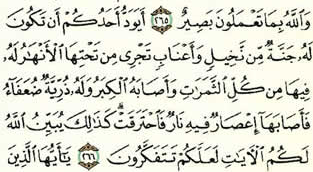 وَٱللَّهُ بِمَا تَعْمَلُونَ بَصِيرٌ ٢٦٥ أَيَوَدُّ أَحَدُكُمْ أَن تَكُونَ
لَهُۥ جَنَّةٌ مِّن نَّخِيلٍ وَأَعْنَابٍ تَجْرِى مِن تَحْتِهَا ٱلْأَنْهَٰرُ لَهُۥ
فِيهَا مِن كُلِّ ٱلثَّمَرَٰتِ وَأَصَابَهُ ٱلْكِبَرُ وَلَهُۥ ذُرِّيَّةٌ ضُعَفَآءُ
فَأَصَابَهَآ إِعْصَارٌ فِيهِ نَارٌ فَٱحْتَرَقَتْ ۗ كَذَٰلِكَ يُبَيِّنُ ٱللَّهُ
لَكُمُ ٱلْءَايَٰتِ لَعَلَّكُمْ تَتَفَكَّرُونَ ٢٦٦ يَٰٓأَيُّهَا ٱلَّذِينَ